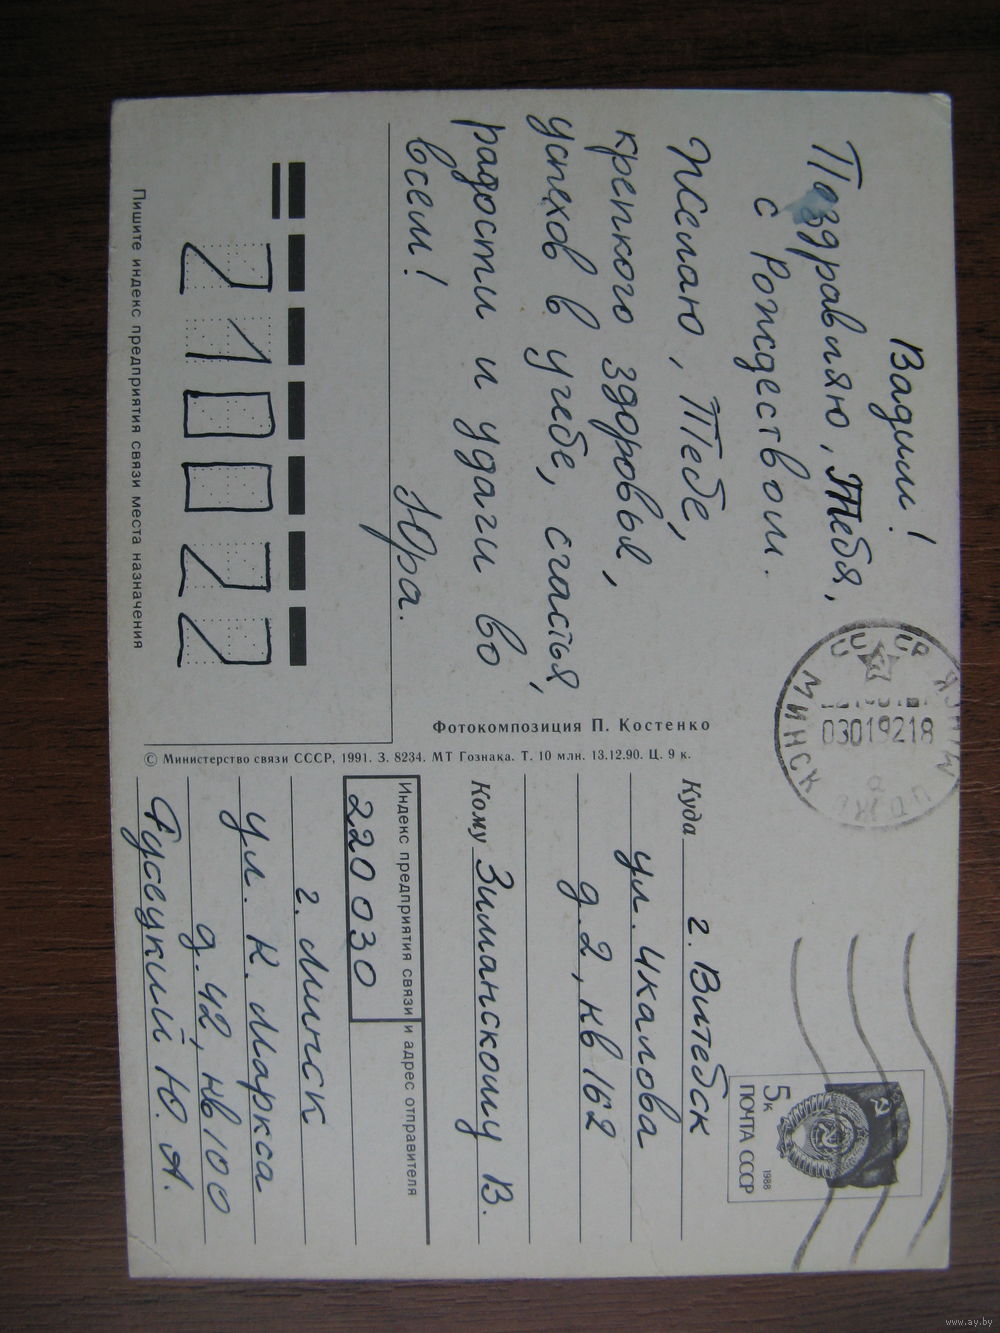 Вадим!
Поздравляю, Тебя,
с Рождеством.
Желаю, Тебе,
крепкого здоровья,
успехов в учебе, счастья,
радости и удачи во
всем!
Юра.
210022
Пишите индекс предприятия связи места назначения
Фотокомпозиция П. Костенко
© Министерство связи СССР, 1991. З. 8234. МТ Гознака. Т. 10 млн. 13.12.90. Ц. 9 к.
СССР
МИНСК
03019218
5к
ПОЧТА СССР
1988
Куда г. Витебск
ул. Чкалова
д. 2, кв 162
Кому Зиманскому В.
Индекс предприятия связи и адрес отправителя
220030
г. Минск
ул. К. Маркса
д. 42, кв 100
Русецкий Ю. А.
www.ay.by